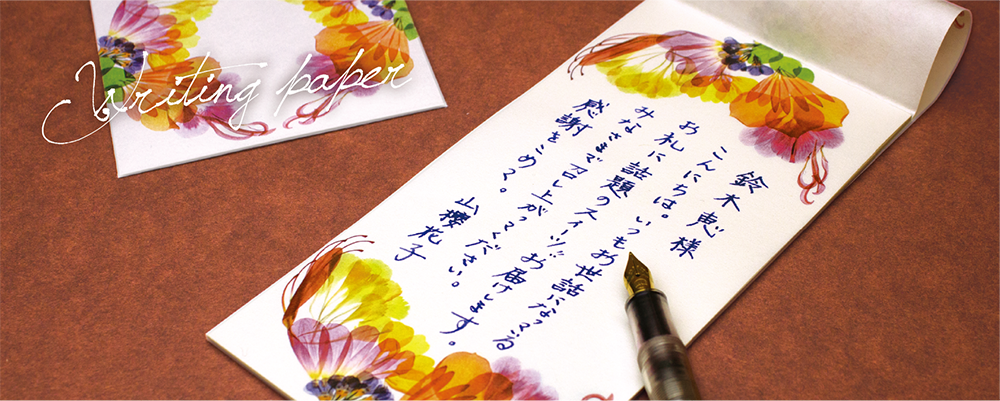 Writing paper
鈴木 恵様
こんにちは。いつもお世話になっている
お礼に話題のスイーツお届けします。
みなさまで召し上がってください。
感謝をこめて。 山櫻花子